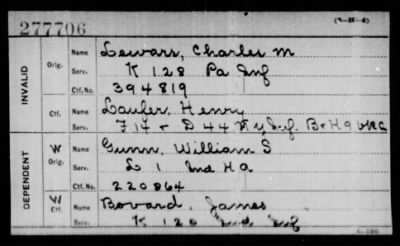 277706
Name Lewars, Charles M
INVALID Orig. Serv. K 128 Pa Inf
Ctf. No. 394819
Name Laufer, Henry
Ctf. Serv. F 14 + D 44 N Y Inf. B H 9
W Name Gunn, William S
DEPENDENT Orig. Serv. L 1 Ind H A
Ctf. No. 220864
W Name Bovard, James
Ctf. Serv. K 120 Ind Inf